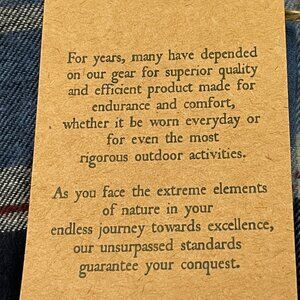 For years, many have depended
on our gear for superior quality
and efficient product made for
endurance and comfort,
whether it be worn everyday or
for even the most
rigorous outdoor activities.
As you face the extreme elements
of nature in your
endless journey towards excellence,
our unsurpassed standards
guarantee your conquest.